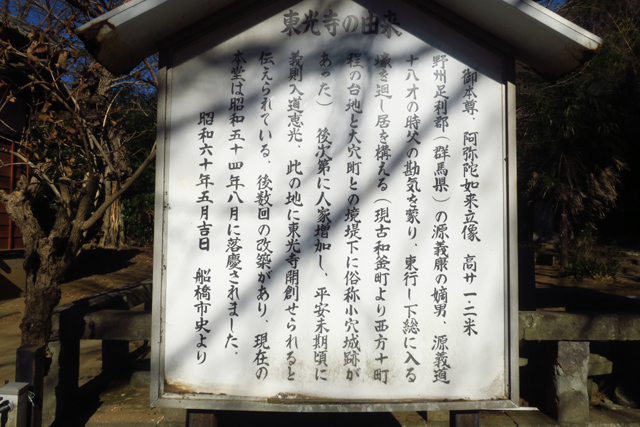 東光寺の由来
御本尊、阿弥陀如来立像 高サ一・二米
野州足利郡(群馬県)の源義康の嫡男、源義道
十八才の時父の勘気を蒙り、東行し下総に入る
壕を廻し居を構える(現古和釜町より西方十町
程の台地と大穴町との境堤下に俗称小穴城跡が
あった) 後次第に人家増加し、平安末期頃に
義則入道恵光、此の地に東光寺開創せられると
伝えられている、後数回の改築があり、現在の
本堂は昭和五十四年八月に落慶されました。
昭和六十年五月吉日 船橋市史より